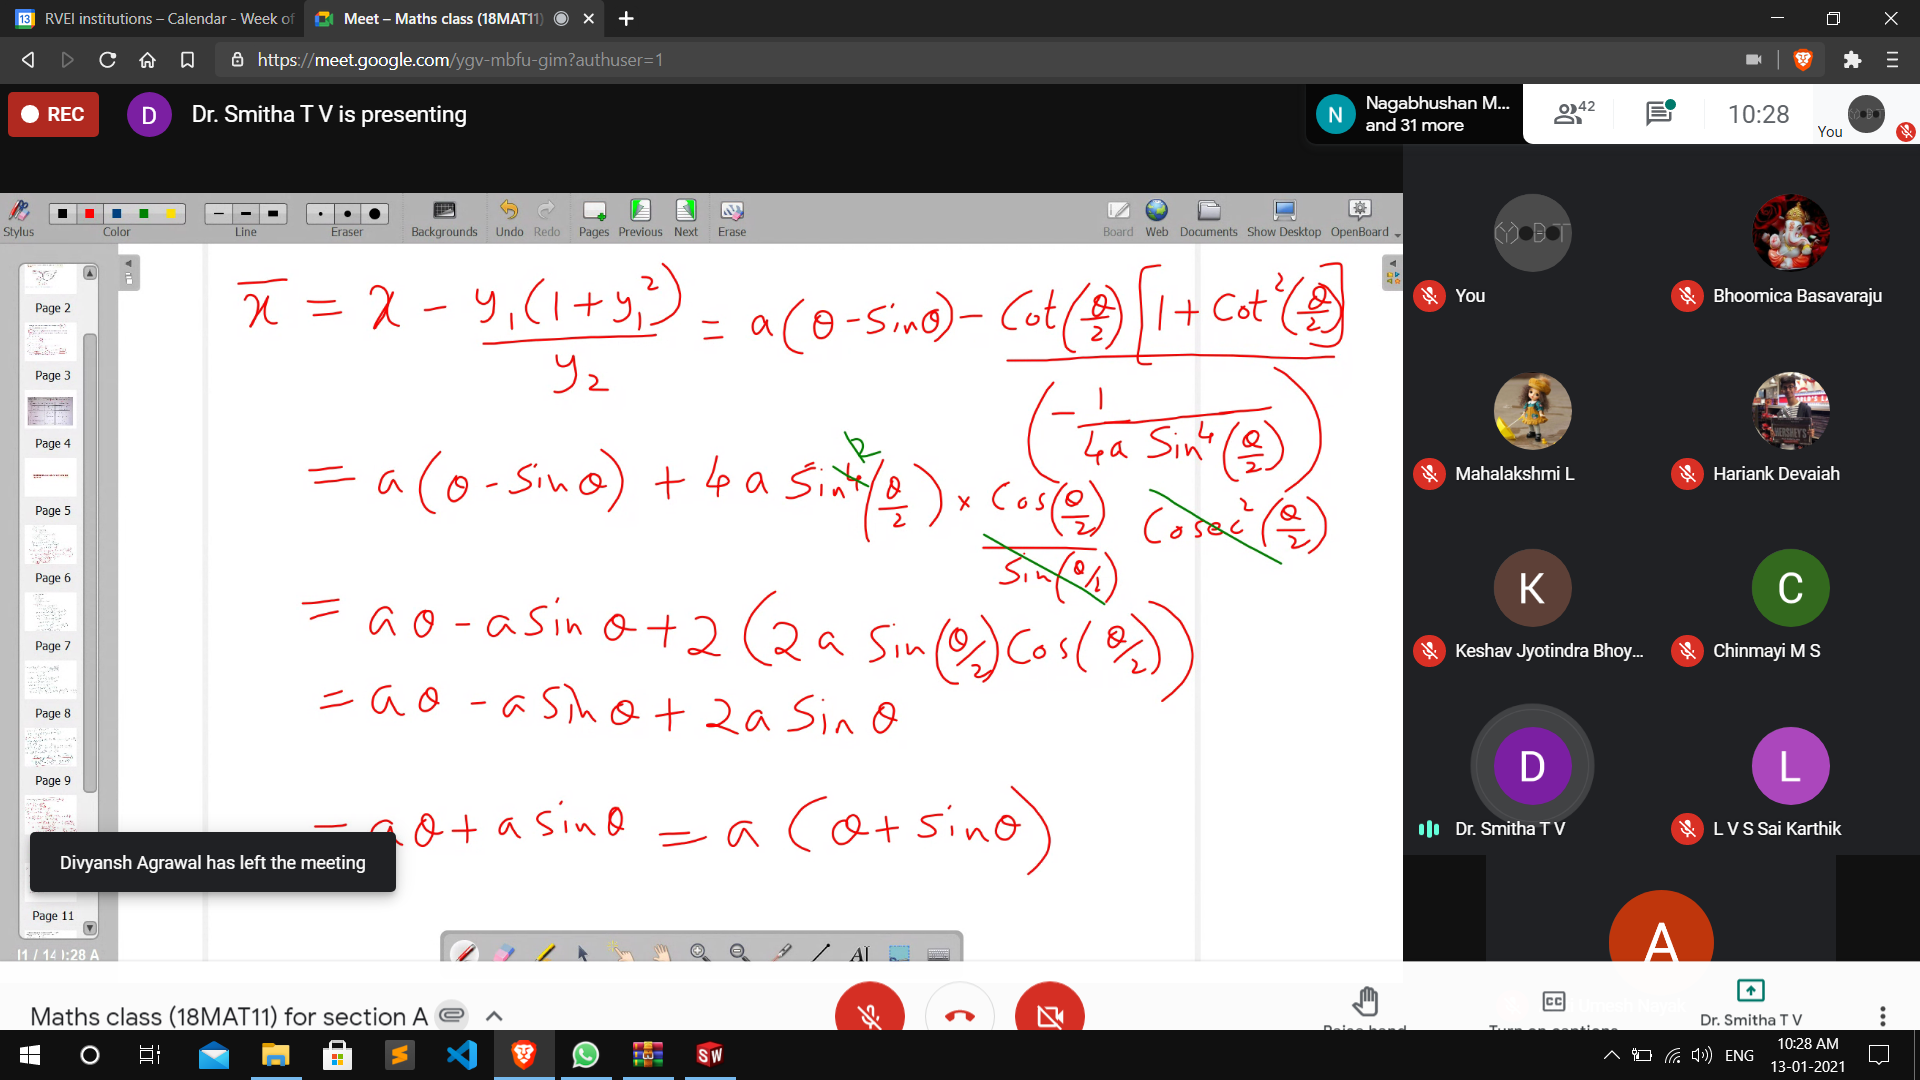 RVEI institutions – Calendar - Week of
Meet – Maths class (18MAT11)
https://meet.google.com/ygv-mbfu-gim?authuser=1
REC
D
Dr. Smitha T V is presenting
N
Nagabhushan M...
and 31 more
42
10:28
You
Stylus
Color
Line
Eraser
Backgrounds
Undo
Redo
Pages
Previous
Next
Erase
Board
Web
Documents
Show Desktop
OpenBoard
Page 2
Page 3
Page 4
Page 5
Page 6
Page 7
Page 8
Page 9
Page 11
x̄ = x - y₁(1+y₁²)/y₂ = a(θ-sinθ) - Cot(θ/2)[1+Cot²(θ/2)] / (-1/(4a Sin⁴(θ/2)))
= a(θ-sinθ) + 4a Sin⁴(θ/2) × Cos(θ/2)/Sin(θ/2) Cosec²(θ/2)
2
= aθ - a sinθ + 2(2a Sin(θ/2) Cos(θ/2))
= aθ - a Sinθ + 2a Sinθ
= aθ + a Sinθ = a(θ + Sinθ)
Divyansh Agrawal has left the meeting
You
Bhoomica Basavaraju
Mahalakshmi L
Hariank Devaiah
K
C
Keshav Jyotindra Bhoy...
Chinmayi M S
D
L
Dr. Smitha T V
L V S Sai Karthik
A
Maths class (18MAT11) for section A
CC
Dr. Smitha T V
SW
ENG
10:28 AM
13-01-2021